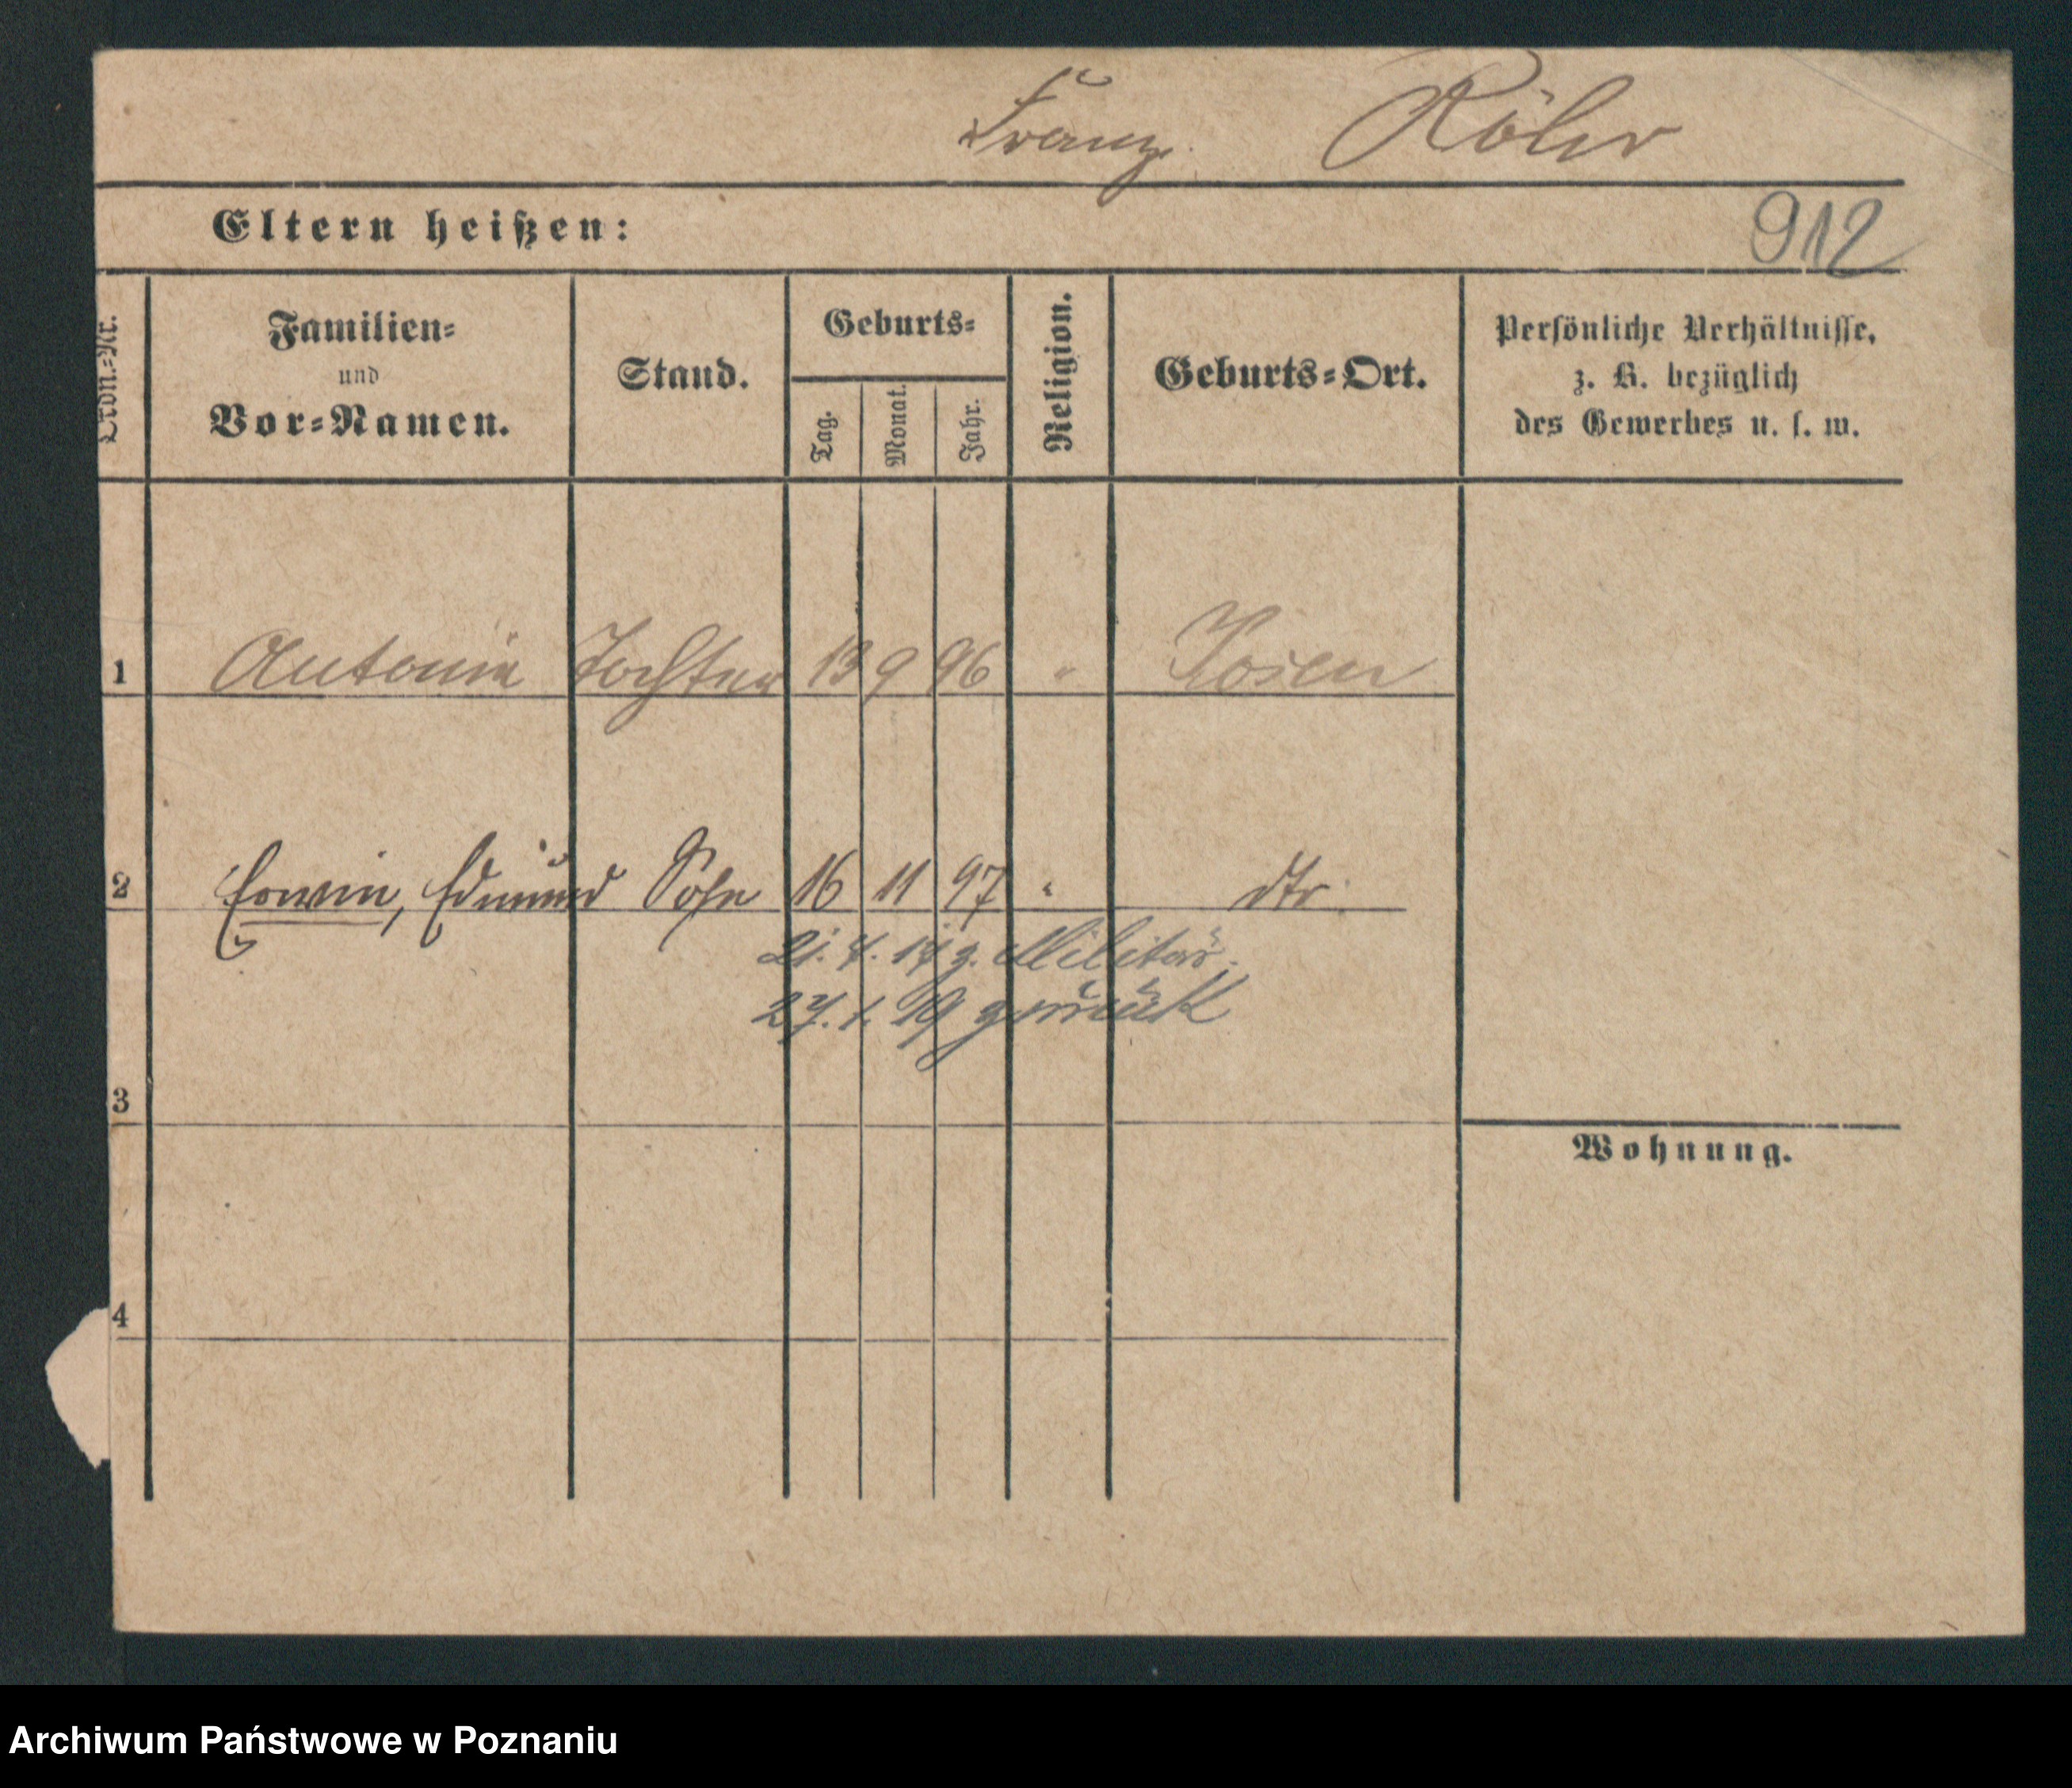 Franz Röhr
Eltern heißen:
912
Ordn.=Nr.
Familien=
und
Vor=Namen.
Stand.
Geburts=
Tag.
Monat.
Jahr.
Religion.
Geburts=Ort.
Persönliche Verhältnisse,
z. B. bezüglich
des Gewerbes u. s. w.
1 Antonie Tochter 13 9 96 " Posen
2 Erwin, Edmund Sohn 16 11 97 " dto.
21. 7. 17 z. Militär.
27. 1. 19 zurück
3
Wohnung.
4
Archiwum Państwowe w Poznaniu